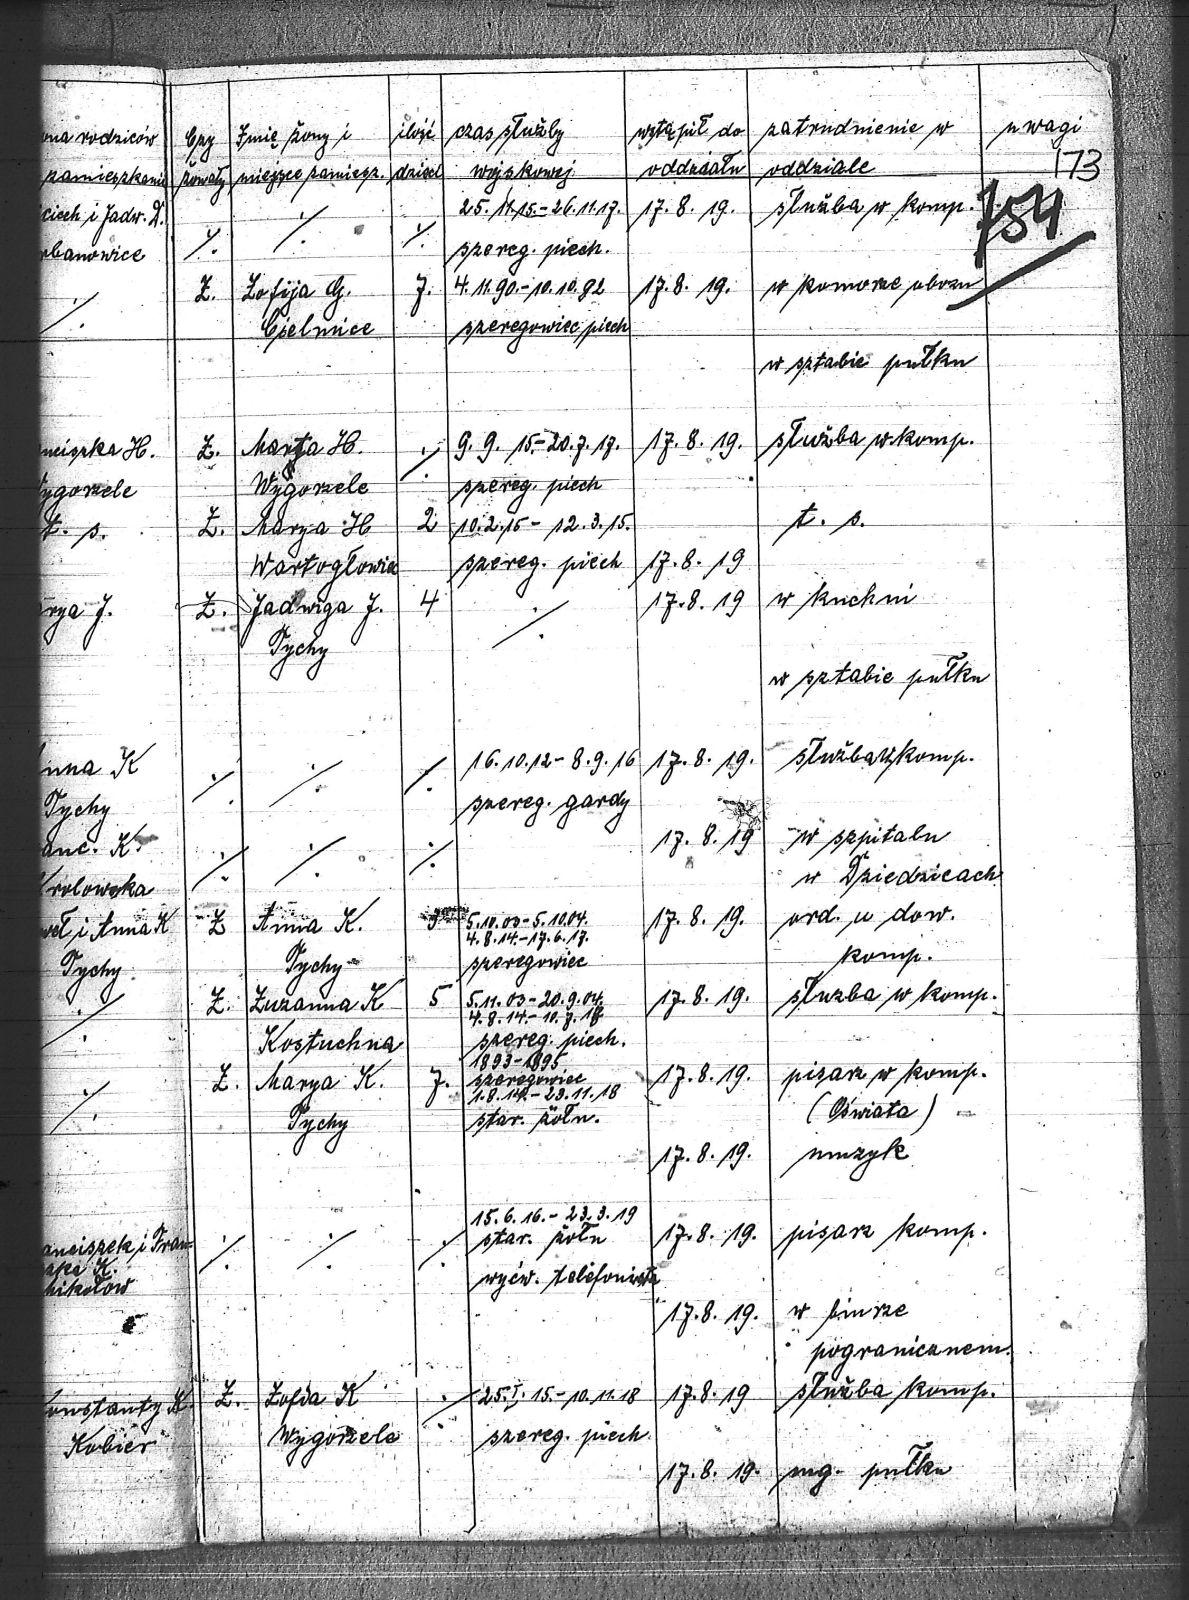 ona rodziców Czy Imię żony i ilość czas służby wstąpił do zatrudnienie w uwagi
zamieszkanie żonaty miejsce zamiesz. dzieci wojskowej oddziału oddziale 173
ciech i Jadw. D. 25. 11. 15. - 26. 11. 17. 17. 8. 19. służba w komp. 754
rbanowice ·/. ·/. ·/. szereg. piech.
·/. Ż. Zofija G. 7. 4. 11. 90. - 10. 10. 92 17. 8. 19. w komorze obozu
Cielmice szeregowiec piech
w sztabie pułku
nciszka H. Ż. Marta H. ·/. 9. 9. 15. - 20. 7. 17. 17. 8. 19. służba w komp.
ygorzele Wygorzele szereg. piech
t. s. Ż. Marya H 2 10. 2. 15 - 12. 3. 15. t. s.
Wartogłowiec szereg. piech 17. 8. 19
arya J. Ż. Jadwiga J. 4 ·/. 17. 8. 19 w kuchni
Tychy
w sztabie pułku
nna K ·/. ·/. ·/. 16. 10. 12 - 8. 9. 16 17. 8. 19. służba w komp.
Tychy szereg. gardy
anc. K. ·/. ·/. ·/. 17. 8. 19 w szpitalu
rolowska w Dziedzicach
weł i Anna K Ż Anna K. 5. 10. 03 - 5. 10. 04. 17. 8. 19. ord. u dow.
4. 8. 14. - 17. 6. 17.
Tychy. Tychy szeregowiec komp.
·/. Ż. Zuzanna K 5 5. 11. 03 - 20. 9. 04. 17. 8. 19. służba w komp.
4. 8. 14. - 10. 7. 18
Kostuchna szereg. piech.
1893 - 1895
·/. Ż. Marya K. 7. szeregowiec 17. 8. 19. pisarz w komp.
1. 8. 14. - 23. 11. 18
Tychy star. żołn. (Oświata)
17. 8. 19. muzyk
15. 6. 16. - 23. 3. 19
anciszek i Fran= ·/. ·/. ·/. star. żołn 17. 8. 19. pisarz komp.
zka K.
mikołow wyćw. telefonista
17. 8. 19. w biurze
pogranicznem.
onstanty K. Ż. Zofia K ·/. 25. I. 15. - 10. 11. 18 17. 8. 19 służba komp.
Kobier Wygorzele szereg. piech.
17. 8. 19. mg. pułku